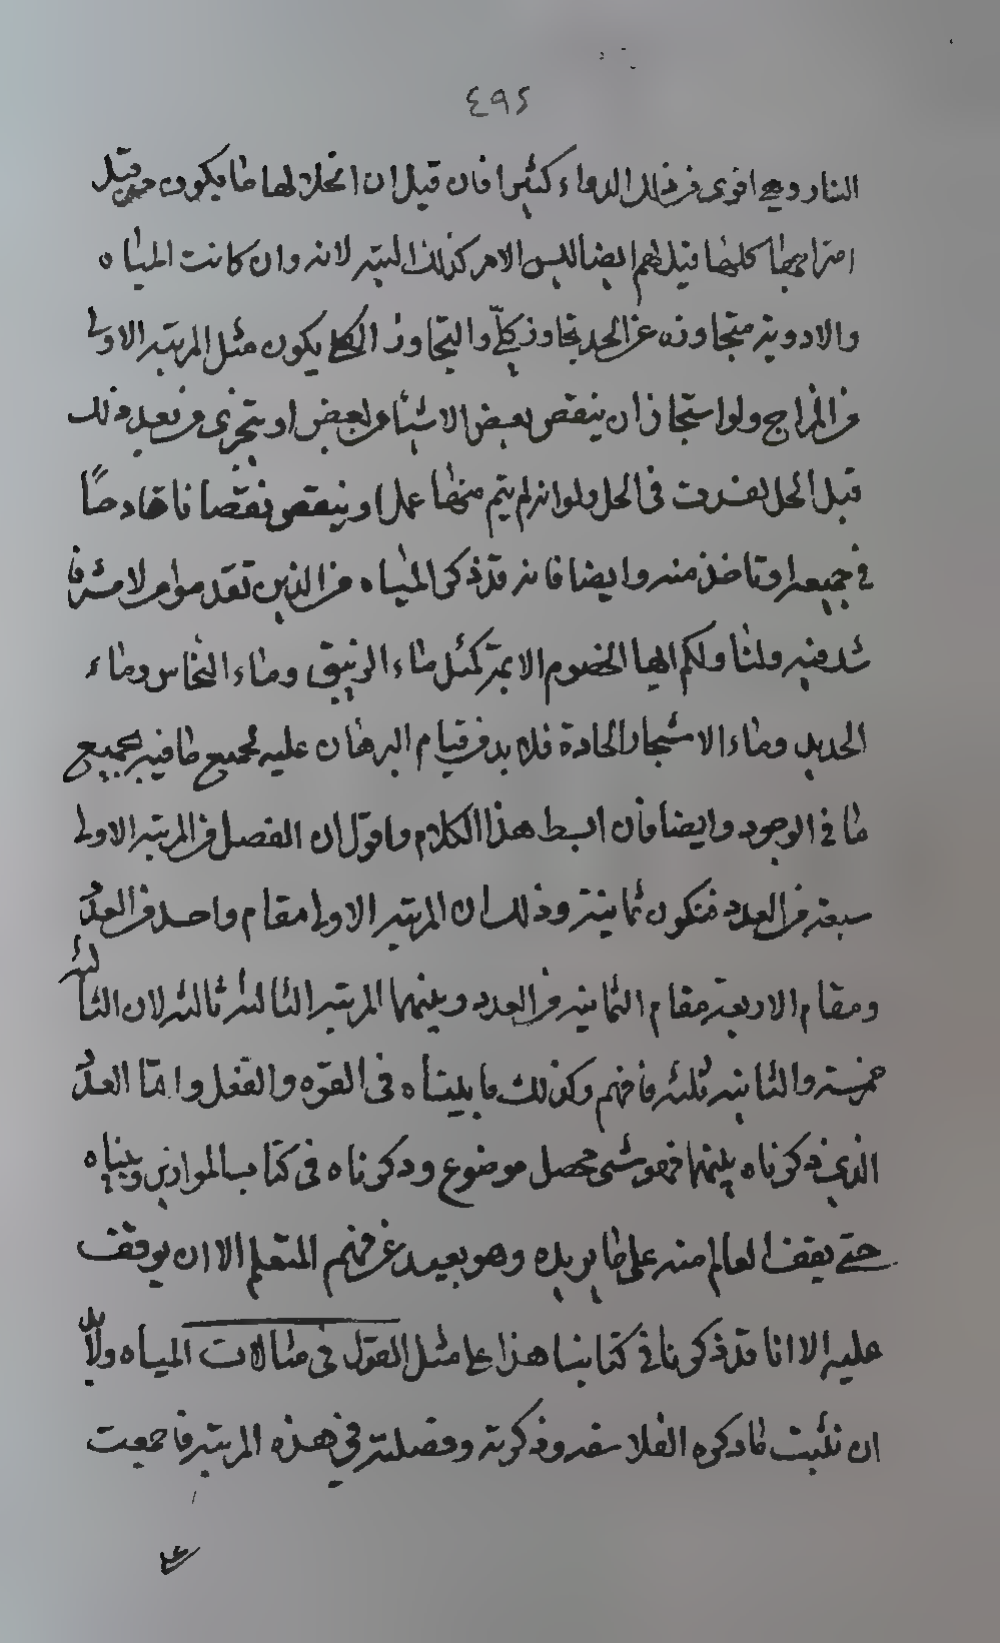 ٤٩٢
النار وهي اقوى من ذلك الدواء كثيرا فان قيل ان انحلالها ما يكون من قبل
امتزاجها كلها قيل لهم ايضا ليس الامر كذلك البتة لانه وان كانت المياه
والادوية متجاوزه عن الحد تجاوز كلّي والتجاوز الكلي يكون مثل المرتبه الاولى
من المزاج ولو استجاز ان ينقص بعض الاشياء بعض او يتجزى من بعد ذلك
قبل الحل في الحل ولو انه لم يتم منها عملا وينقص نقصانا فادحًا
في جميعه او تاخذ منه وايضا فانه قد ذكر المياه من الذين تقدموا من لا
ولنا ولكم ايها الخصوم الايمة كمثل ماء الزيبق وماء النحاس وماء
الحديد وماء الاشجار الحادة فلا بد من قيام البرهان عليه بجميع ما فيه بجميع
ما في الوجود وايضا فان ابسط هذا الكلام واقول ان الفصل من المرتبه الاولى
سبعة من العدد فتكون ثمانية وذلك ان المرتبه الاولى مقام واحد من العدد
ومقام الاربعة مقام الثمانيه من العدد وبينهما المرتبه الثالثه ثالثه لان الثالثه
خمسة والثانيه ثلثه فافهم وكذلك ما بيناه في القوه والفعل وامّا العدد
الذي ذكرناه بينهما فهو شي محصل موضوع وذكرناه في كتاب الموازين وبيناه
حتى يقف العالم منه على ما يريده وهو بعيد عن فهم المتعلم الا ان يوقف
عليه الا انا قد ذكرنا في كتابنا هذا على مثل القول في مثالات المياه ولابد
ان نثبت ما ذكره الفلاسفه وذكرته وفصلته في هذه المرتبه فاجمعت